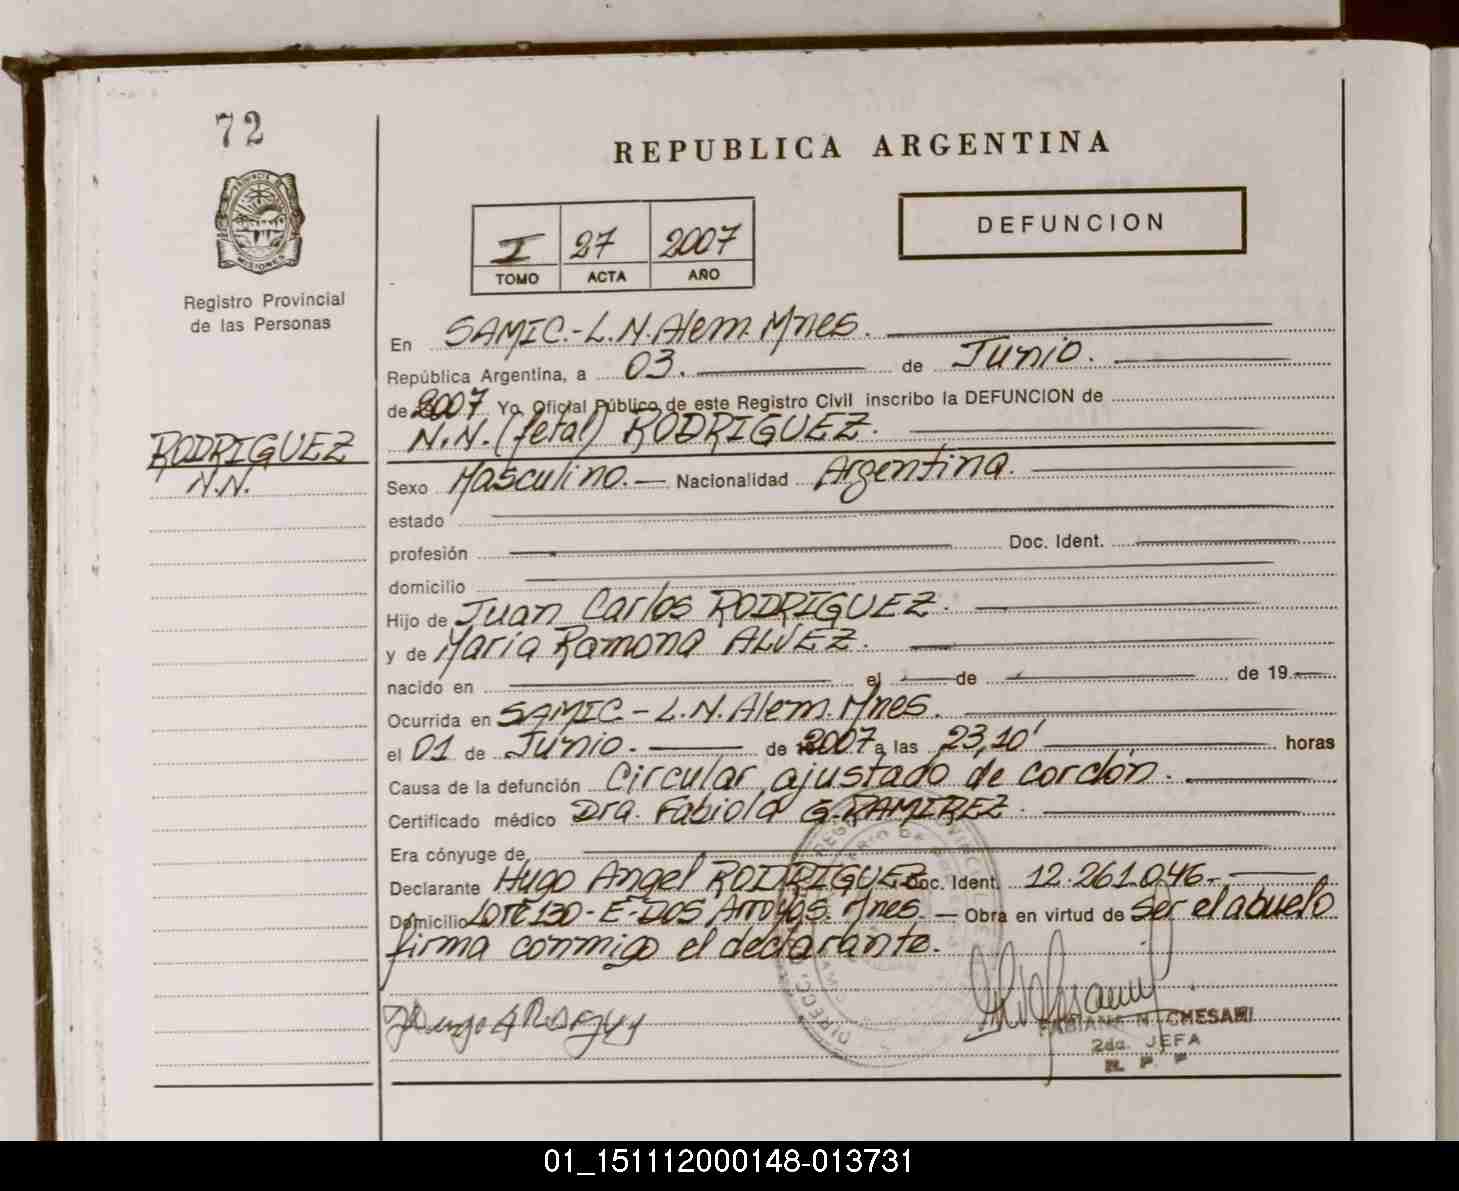 72
REPUBLICA ARGENTINA
DEFUNCION
I 27 2007
TOMO ACTA AÑO
PROVINCIA DE
MISIONES
Registro Provincial
de las Personas
En SAMIC.-L.N.Alem.Mnes.
República Argentina, a 03. de Junio.
de 2007 Yo Oficial Público de este Registro Civil inscribo la DEFUNCION de
N.N.(fetal) RODRIGUEZ.
RODRIGUEZ
N.N.
Sexo Masculino. Nacionalidad Argentina.
estado
profesión Doc. Ident.
domicilio
Hijo de Juan Carlos RODRIGUEZ.
y de Maria Ramona ALVEZ.
nacido en el de de 19
Ocurrida en SAMIC.-L.N.Alem.Mnes.
el 01 de Junio. de 2007 a las 23,10' horas
Causa de la defunción Circular ajustado de cordón.
Certificado médico Dra. Fabiola G.RAMIREZ.
Era cónyuge de
Declarante Hugo Angel RODRIGUEZ Doc. Ident. 12.261.046.-
Domicilio LOTE 130-E-DOS Arroyos. Mnes. — Obra en virtud de Ser el abuelo
firma conmigo el declarante.
CHESANI
2da. JEFA
R. P. P
01_151112000148-013731